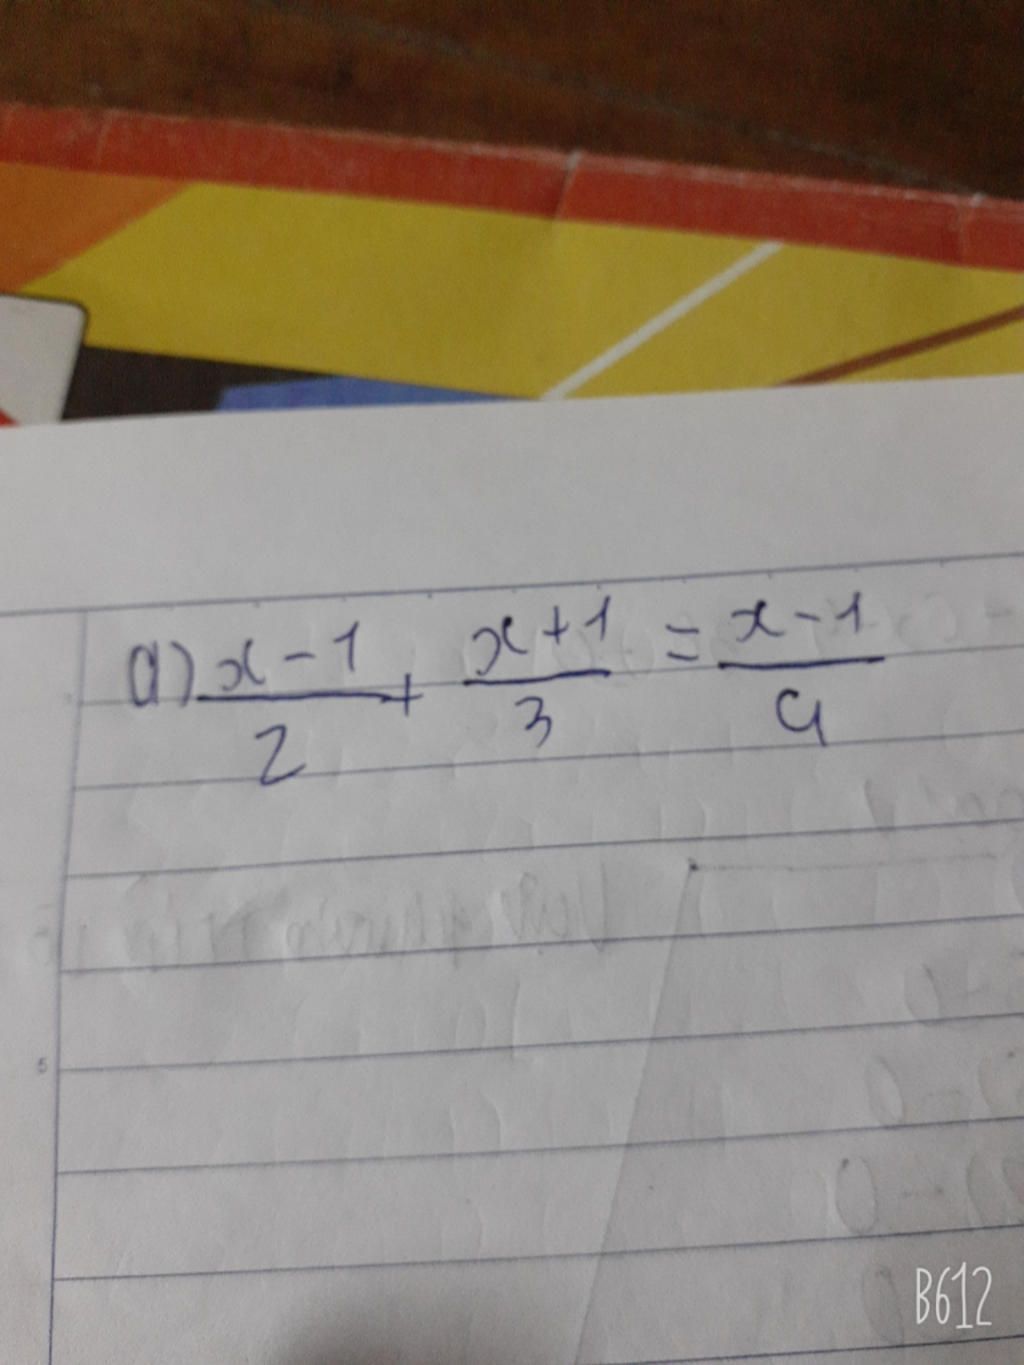 a) x-1/2 + x+1/3 = x-1/4
5
B612